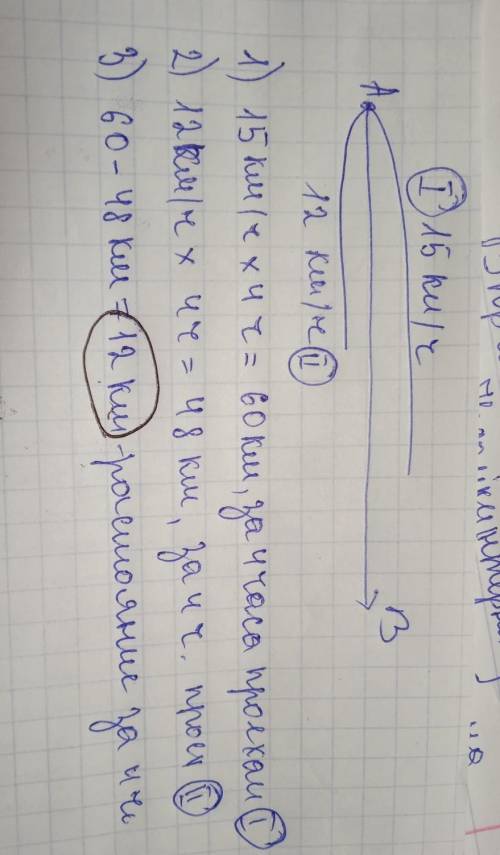 Ⅰ 15 км/ч
А В
12 км/ч Ⅱ
1) 15 км/ч × 4 ч = 60 км, за 4 часа проехал Ⅰ
2) 12 км/ч × 4 ч = 48 км, за 4 ч. проех Ⅱ
3) 60 - 48 км = 12 км - растояние за 4 ч